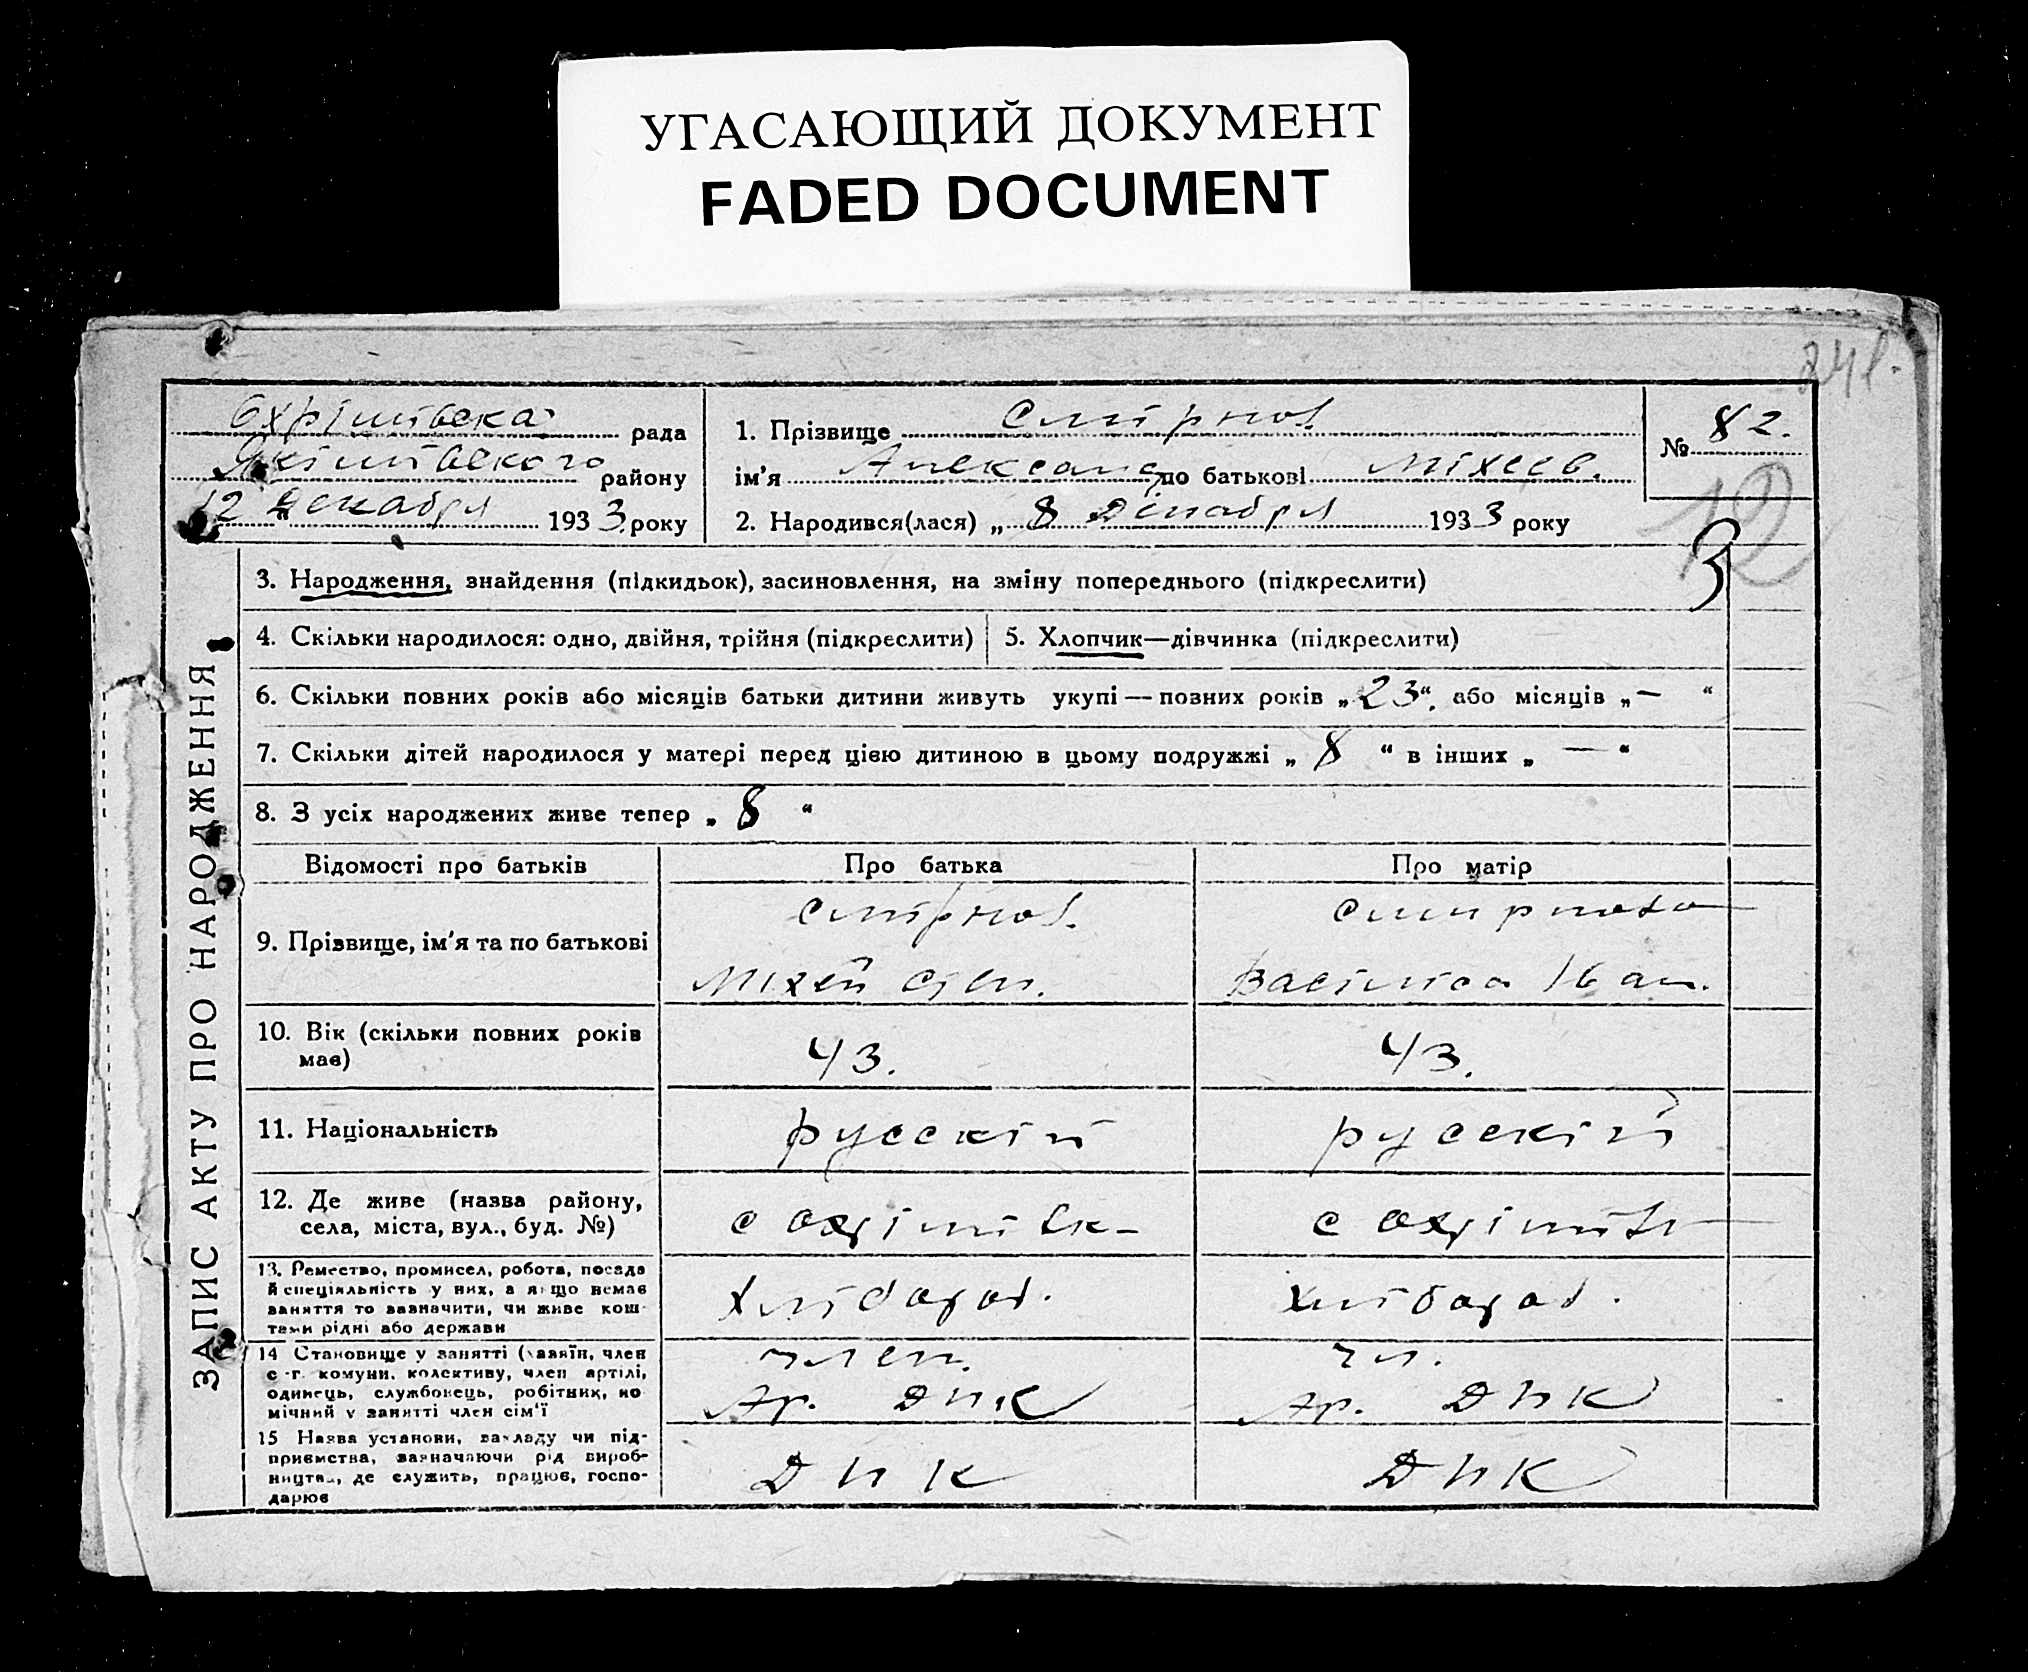 УГАСАЮЩИЙ ДОКУМЕНТ
FADED DOCUMENT
241.
Охрімівска рада
Якімівского району
12 " Декабря 1933. року
1. Прізвище Смірнов.
ім'я Александ по батькові Міхеев.
2. Народився(лася) „ 8 Дікабря 1933 року
№ 82.
12
3
ЗАПИС АКТУ ПРО НАРОДЖЕННЯ
3. Народження, знайдення (підкидьок), засиновлення, на зміну попереднього (підкреслити)
4. Скільки народилося: одно, двійня, трійня (підкреслити)
5. Хлопчик—дівчинка (підкреслити)
6. Скільки повних років або місяців батьки дитини живуть укупі — повних років „23“. або місяців „ — “
7. Скільки дітей народилося у матері перед цією дитиною в цьому подружжі „ 8 “ в інших „ — “
8. З усіх народжених живе тепер „ 8 “
Відомості про батьків
Про батька
Про матір
9. Прізвище, ім'я та по батькові
Смірнов.
Міхей Сем.
Смирнова
Васіліса Іван.
10. Вік (скільки повних років
має)
43.
43.
11. Національність
русскій
русскій
12. Де живе (назва району,
села, міста, вул., буд. №)
с Охрімівк-
с Охрімів
13. Ремество, промисел, робота, посада
й спеціяльність у них, а якщо немає
заняття то зазначити, чи живе кош-
тами рідні або держави
Хлібороб.
Хлібороб.
14 Становище у занятті (хазяїн, член
с.-г. комуни, колективу, член артілі,
одинець, службовець, робітник, по
мічний у занятті член сім'ї
член.
Ар. ДПК
чл.
Ар. ДПК
15 Назва установи, закладу чи під-
приємства, зазначаючи рід вироб-
ництва, де служить, працює, госпо-
дарює
ДПК
ДПК